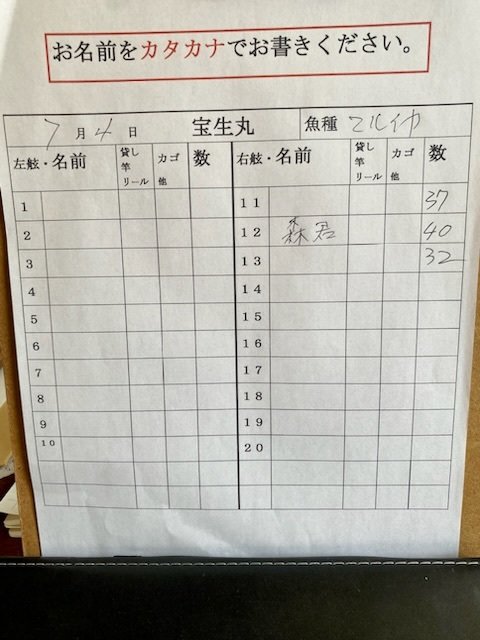 お名前をカタカナでお書きください。
7月4日 宝生丸 魚種 マルイカ
左舷・名前 貸し竿リール カゴ他 数 右舷・名前 貸し竿リール カゴ他 数
1 11 37
2 12 森君 40
3 13 32
4 14
5 15
6 16
7 17
8 18
9 19
10 20